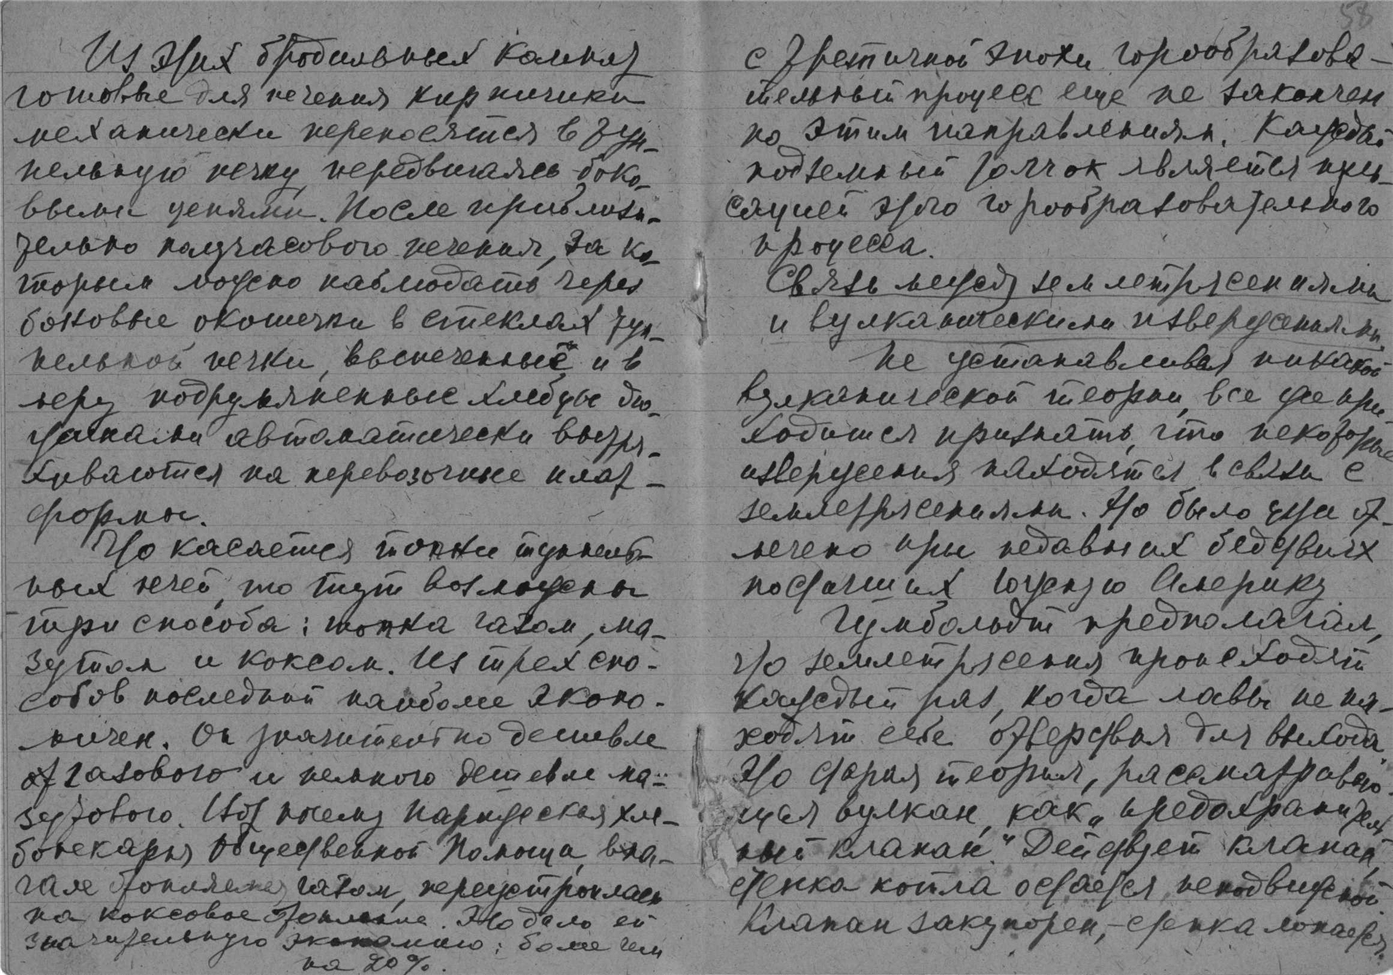 Из этих бродильных камер
готовые для печения кирпичики
механически переносятся в тун-
нельную печку, передвигаясь боко-
выми цепями. После приблизи-
тельно получасового печения, за ко-
торым можно наблюдать через
боковые окошечки в стеклах тун-
нельной печки, выпеченные и в
меру подрумяненные хлебцы дю-
жинами автоматически вытря-
хиваются на перевозочные плат-
формы.
Что касается топки туннель-
ных печей, то тут возможны
три способа: топка газом, ма-
зутом и коксом. Из трех спо-
собов последний наиболее эконо-
мичен. Он значительно дешевле
газового и немного дешевле ма-
зутового. Вот почему Парижская хле-
бопекарня Общественной Помощи, вна-
чале газом, переустроилась
на коксовое отопление. Это дало ей
значительную экономию: более чем
на 20%.
58
с третичной эпохи горообразова-
тельный процесс еще не закончен
по этим направлениям. Каждый
подземный толчок является пуль-
сацией этого горообразовательного
процесса.
Связь между землетрясениями
и вулканическими извержениями.
Не устанавливая никакой
вулканической теории, все же при-
ходится признать, что некоторые
извержения находятся в связи с
землетрясениями. Это было от-
мечено при недавних бедствиях
постигших Южную Америку
Гумбольдт предполагал,
что землетрясения происходят
каждый раз, когда лавы не на-
ходят себе отверстия для выхода.
Это старая теория, рассматриваю-
щая вулкан, как "предохранитель-
ный клапан". Действует клапан,
стенка котла остается неподвижной
Клапан закупорен, - стенка лопается.